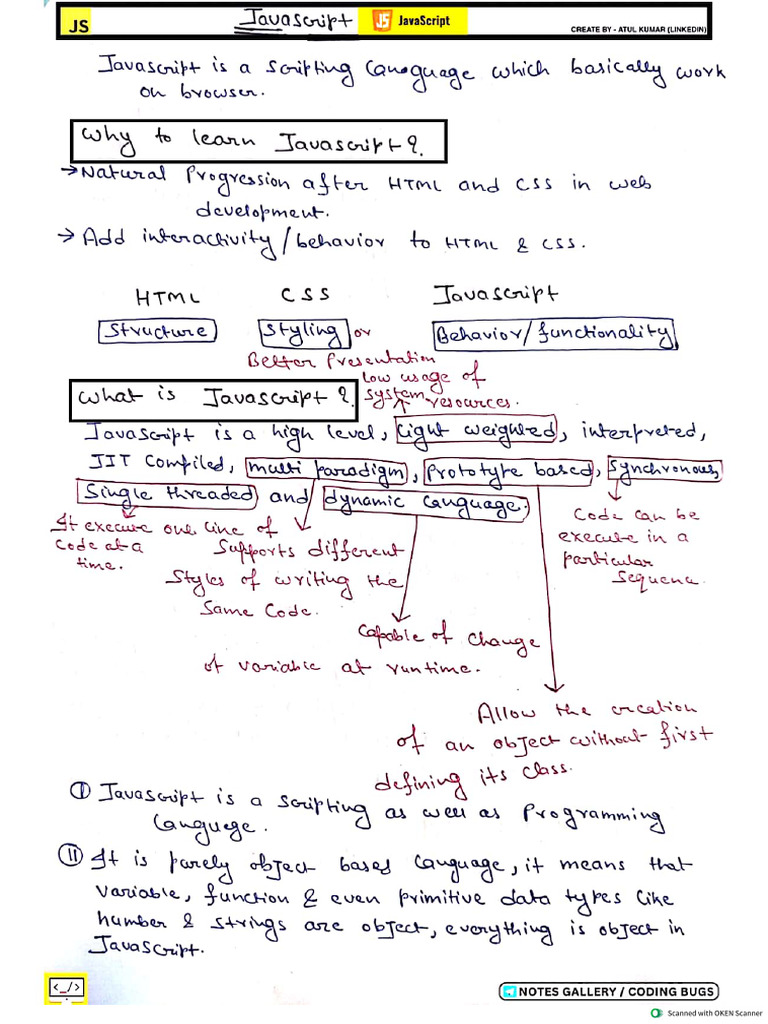 JS
Javascript
JS JavaScript
CREATE BY - ATUL KUMAR (LINKEDIN)
Javascript is a scripting language which basically work
on browser.
Why to learn Javascript?
→ Natural Progression after HTML and CSS in web
development.
→ Add interactivity/behavior to HTML & CSS.
HTML CSS Javascript
Structure Styling or Behavior/functionality
Better Presentation
low usage of
system resources.
What is Javascript?
Javascript is a high level, light weighted, interpreted,
JIT Compiled, multi paradigm, Prototype based, Synchronous,
Single threaded and dynamic language.
It execute one line of
code at a
time.
Supports different
Styles of writing the
Same Code.
Code can be
execute in a
particular
sequence.
Capable of change
of variable at runtime.
Allow the creation
of an object without first
defining its class.
I Javascript is a scripting as well as Programming
Languege.
II It is purely object based language, it means that
variable, function & even primitive data types like
number & strings are object, everything is object in
JavaScript.
<_/>
NOTES GALLERY / CODING BUGS
Scanned with OKEN Scanner